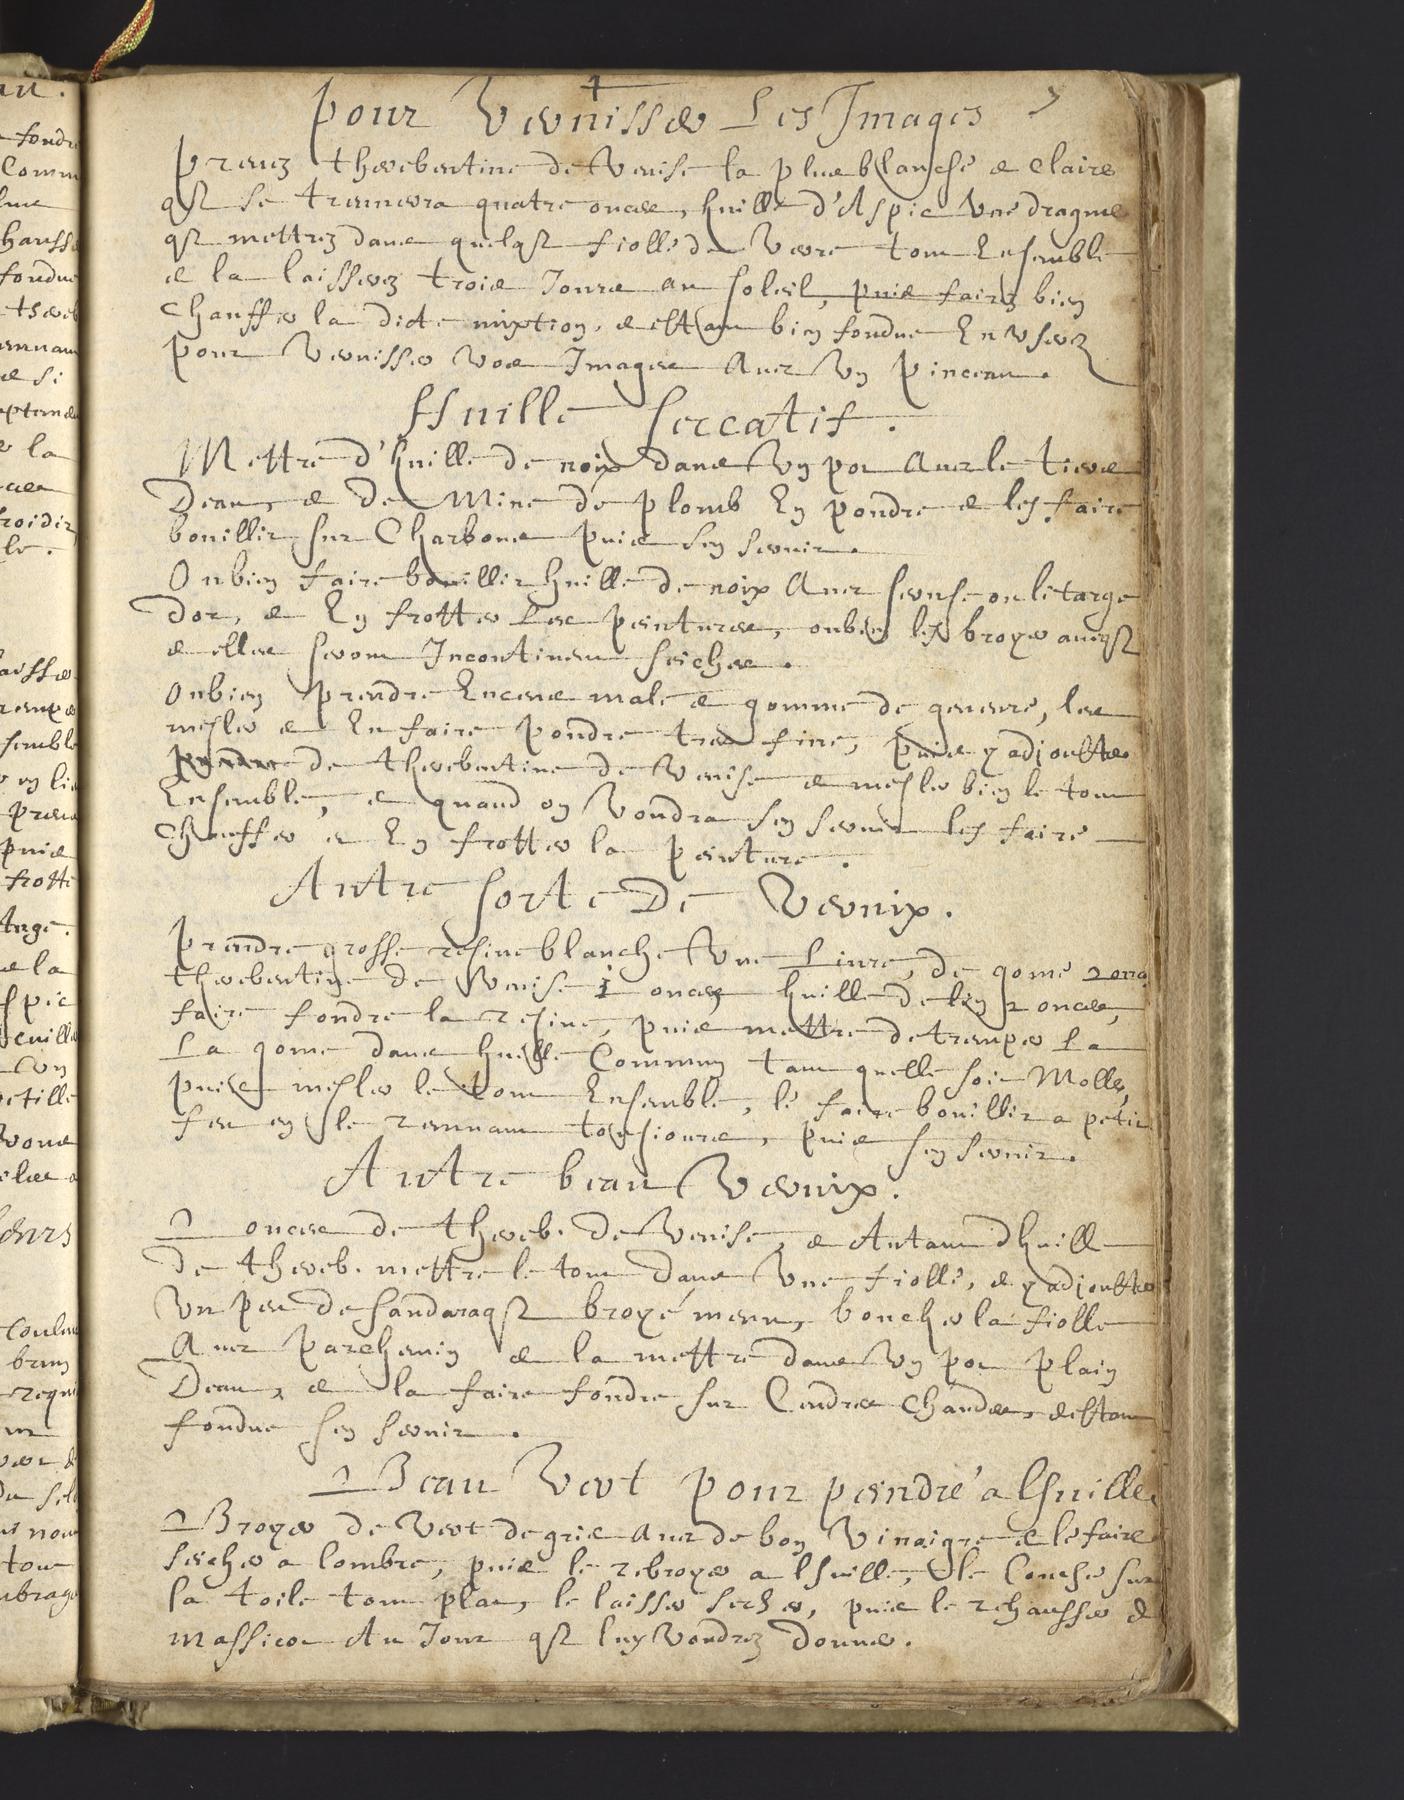 Pour Vernisser Les Images
Prenez therebentine de Venise la plus blanche & claire
qui se trouvera quatre onces, huille d'Aspic une dragme
que mettrez dans quelque fiolle de verre tout Ensemble
& la laisserez trois Jours au soleil, puis faire bien
chauffer la dicte mixtion, & estant bien fondue En userez
pour Vernisser vos Images Avec un pinceau.
Huille seccatif.
Mettre d'huille de noix dans un pot Avec le tiers
Deau, & de Mine de plomb En poudre & les faire
bouillir sur Charbons puis sen servir.
Oubien faire bouillir huille de noix Avec ceruse ou litarge
dor, & En frotter Les peintures, oubien les broyer avecq
& elles seront Incontinent seiches.
Oubien prendre Encens male & gomme de genevre, les
mesler & En faire poudre tres fine, puis y adjouster
de therebentine de Venise & mesler bien le tout
Ensemble, & quand on voudra sen servir les faire
chauffer & En frotter la peinture.
Autre sorte De Vernix.
Prendre grosse resine blanche Une Livre, de gome 2 onc
therebentine de Venise 1 onces, huille de lin 2 onces,
faire fondre la resine, puis mettre detremper La
La gome dans huille Commun tant quelle soit Molle,
puis mesler le tout Ensemble, le faire bouillir a petit
feu en le remuant tousiours, puis sen servir.
Autre beau Vernix.
2 onces de thereb. de Venise, & Autant dhuille
De thereb. mettre le tout dans Une fiolle, & y adjouster
Un peu de sandaraque broyé menu, boucher la fiolle
Avec parchemin & la mettre dans un pot plain
Deau, & la faire fondre sur Cendres chaudes, & estant
fondue sen servir.
Beau Vert pour peindre a lhuille.
Broyer de vert degris Avec de bon vinaigre & le faire
secher a lombre, puis le rebroyer a lhuille, & le Coucher sur
la toile tout plat, le laisser secher, puis le rehausser de
massicot Au Jour que luy voudrez donner.